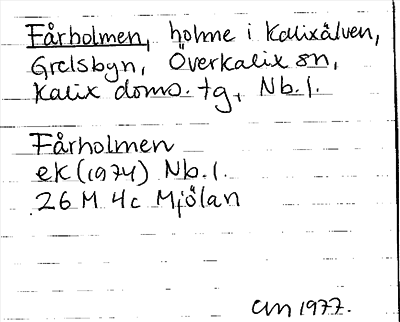 Fårholmen, holme i Kalixälven,
Grelsbyn, Överkalix sn,
Kalix doms. tg, Nb.l.
Fårholmen
ek (1974) Nb.l.
26 M 4c Mjölan
CM 1977.